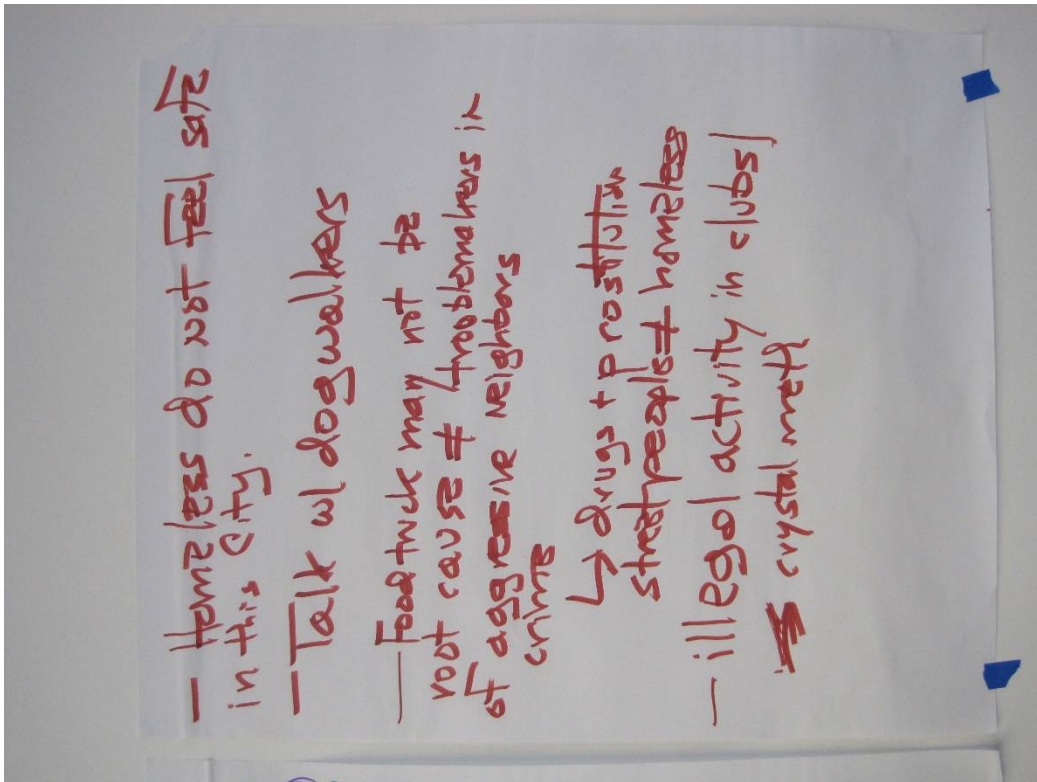 — Homeless do not feel safe
in this City.
— Talk w/ dogwalkers
— Foodtruck may not be
root cause ≠ troublemakers in
of aggressive neighbors
crime
↳ drugs + prostitution
street people ≠ homeless
— illegal activity in clubs/
crystal meth